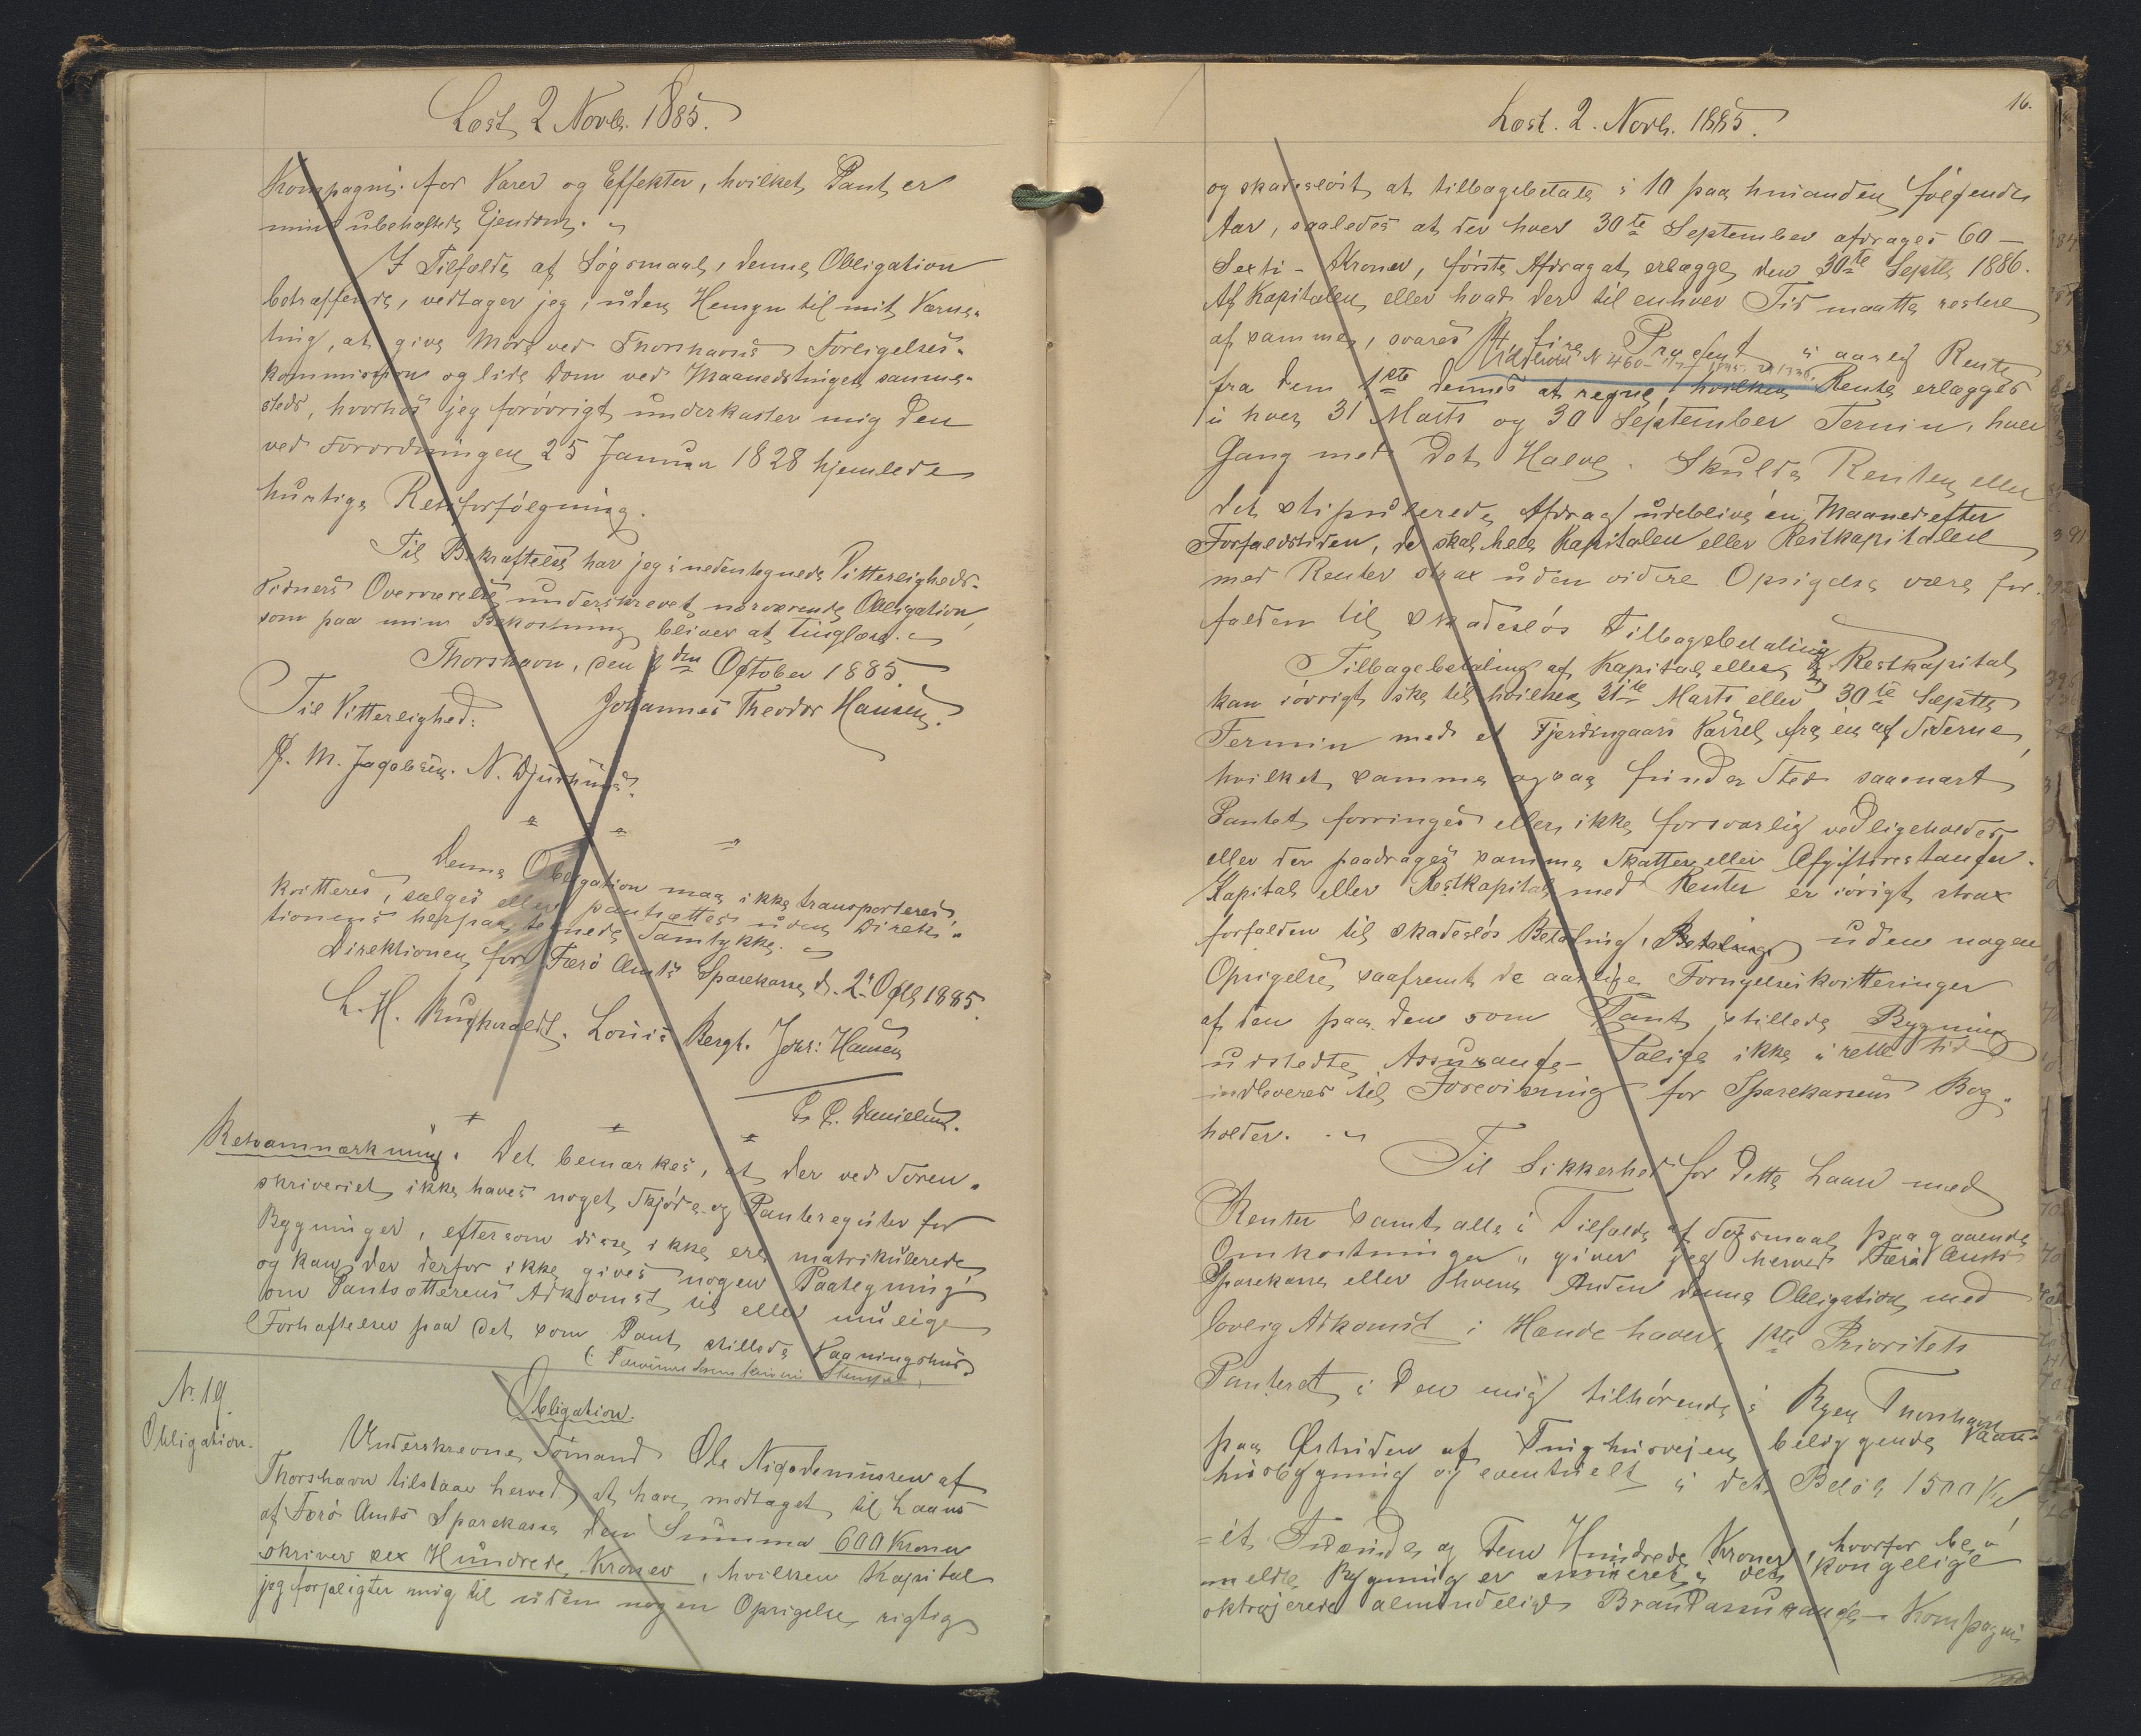 Læst 2 Novb. 1885.
Kompagni for Varer og Effekter, hvilket Pant er
min ubehæftede Ejendom.
I Tilfælde af Søgsmaal, denne Obligation
betræffende, vedtager jeg, uden Hensyn til mit Værne-
ting, at give Møde ved Thorshavns Forligelses-
kommission og lide Dom ved Maanedstinget samme-
steds, hvorhos jeg forøvrigt underkaster mig den
ved Forordningen 25 Januar 1828 hjemlede
hurtige Retsforfølgning.
Til Bekræftelse har jeg i nedentegnede Vitterligheds-
Vidners Overværelse underskrevet nærværende Obligation,
som paa min Bekostning bliver at tinglæse.
Thorshavn, den 2den October 1885.
Til Vitterlighed: Johannes Theodor Hansen.
J. M. Jacobsen. N. Djurhuus.
Denne Obligation maa ikke transporteres,
kvitteres, sælges eller pantsættes uden Direk-
tionens herpaa tegnede Samtykke.
Direktionen for Færø Amts Sparekasse, d. 2 Octb 1885.
L. H. Bugh Louis Bergh. Johs: Hansen
P. P. Danielsen.
Retsanmærkning. Det bemærkes, at der ved Soren-
skriveriet ikke haves noget Skjøde- og Panteregister for
Bygninger, eftersom disse ikke ere matrikulerede
og kan der derfor ikke gives nogen Paategning
om Pantsætterens Adkomst til eller mulige
Forhæftelser paa det som Pant stillede Vaaningshus
No. 19.
Obligation.
Obligation.
Underskrevne Sømand Ole Nigodemussen af
Thorshavn tilstaar herved at have modtaget til Laans
af Færø Amts Sparekasse den Summa 600 Kroner
skriver sex Hundrede Kroner, hvilken Kapital
jeg forpligter mig til uden nogen Opsigelse rigtig
16.
Læst. 2. Novb. 1885.
og skadesløst at tilbagebetale i 10 paa hinanden følgende
Aar, saaledes at der hver 30te September afdrages 60 —
Sexti - Kroner, første Afdrag at erlægge den 30te Septb 1886.
Af Kapitalen eller hvad der til enhver Tid maatte restere
af samme, svares 4 fire Procent i aarlig Rente
fra den 1ste dennes at regne, hvilken Rente erlægges
i hver 31 Marts og 30 September Termin, hver
Gang med det Halve. Skulde Renten eller
det stipulerede Afdrag udeblive én Maaned efter
Forfaldstiden, da skal hele Kapitalen eller Restkapitalen
med Renter strax uden videre Opsigelse være for-
falden til skadesløs Tilbagebetaling
Tilbagebetaling af Kapital eller Restkapital
kan iøvrigt ske til hvilken 31te Marts eller 30te Septb
Termin med et Fjerdingaars Varsel fra en af Siderne,
hvilket samme ogsaa finder Sted saasnart
Pantet forringes eller ikke forsvarlig vedligeholdes,
eller der paadrages samme Skatter eller Afgiftsrestancer.
Kapital eller Restkapital med Renter er iøvrigt strax
forfalden til skadesløs Betaling, Betaling uden nogen
Opsigelse, saafremt de aarlige Fornyelseskvitteringer
af den paa den som Pant stillede Bygning
udstedte Assurance - Police ikke i rette tid
indleveres til Forevisning for Sparekassens Bog-
holder.
Til Sikkerhed for dette Laan med
Renter samt alle i Tilfælde af Søgsmaal paagaaende
Omkostninger, giver jeg herved Færø Amts
Sparekasse eller hvem Anden denne Obligation med
lovlig Adkomst i Hænde haver, 1ste Prioritets
Panteret i den mig tilhørende i Byen Thorshavn
paa Østsiden af Tinghusvejen beliggende Vaan-
husbygning og eventuelt i det Beløb 1500 Kr
= et Tusinde og Fem Hundrede Kroner, hvorfor be-
meldte Bygning er assureret i det kongelige
oktrojerede almindelige Brandassurance - Kompagni